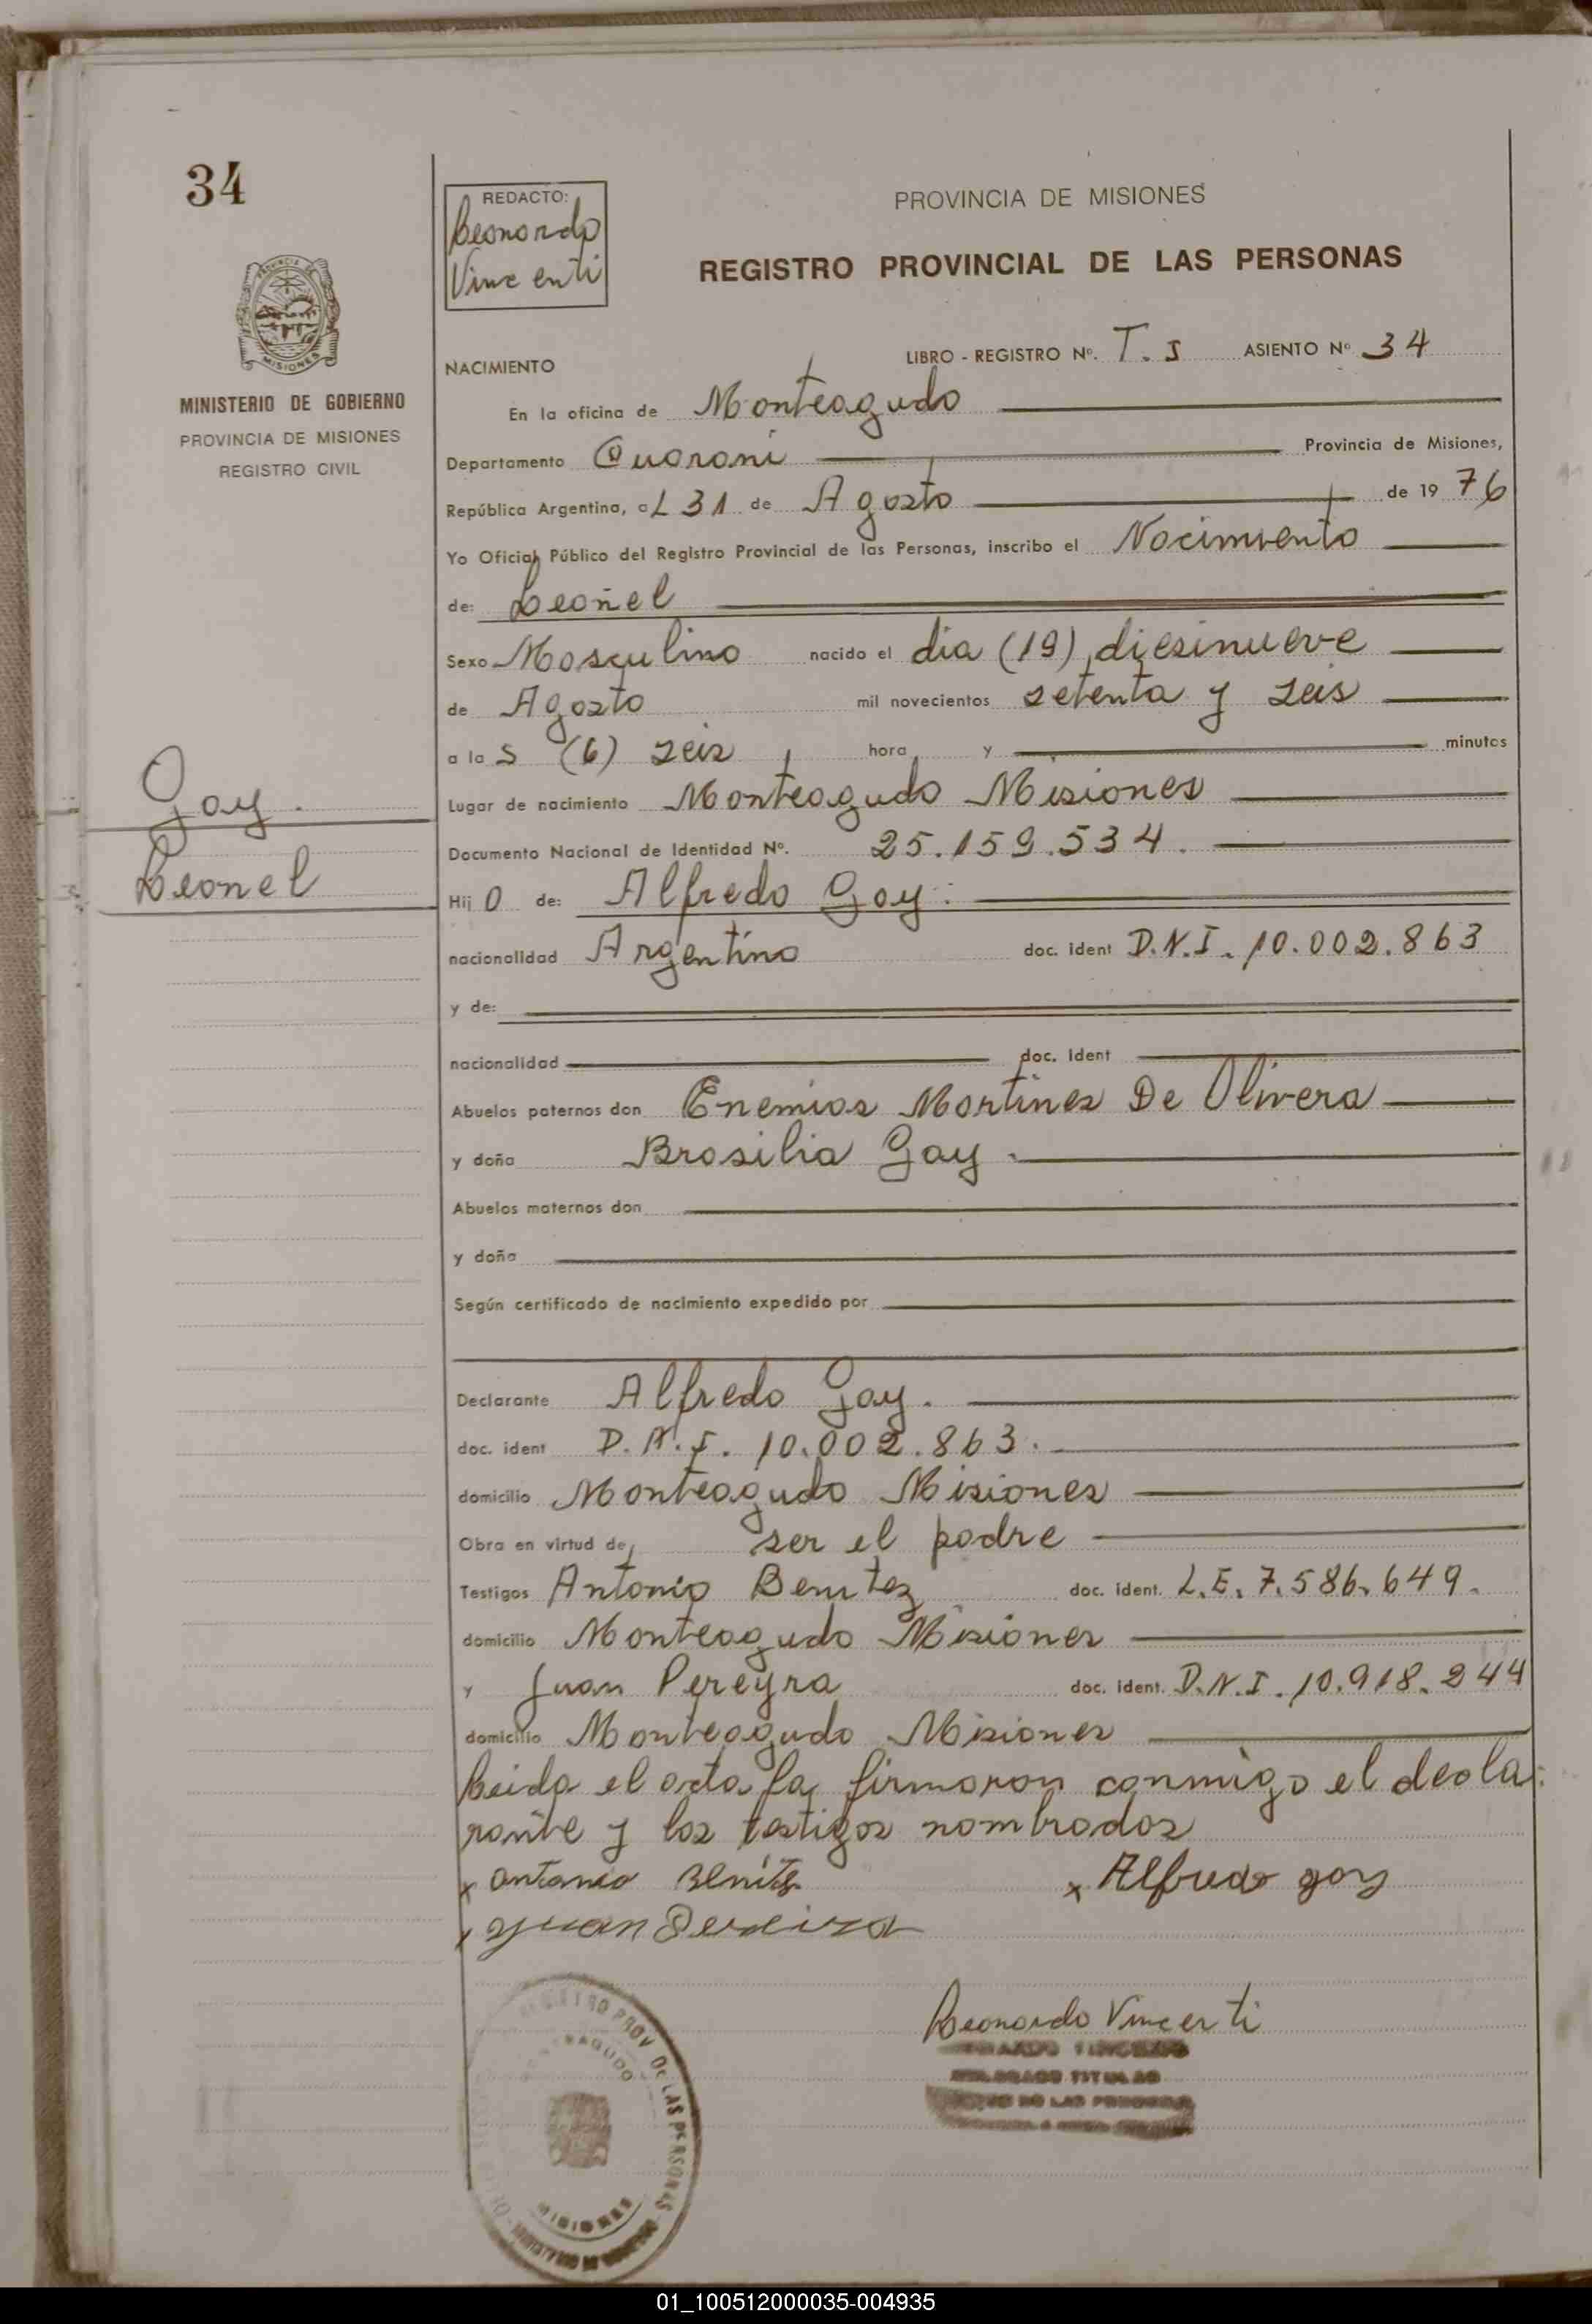 34
REDACTO:
Leonardo
Vincenti
PROVINCIA DE MISIONES
REGISTRO PROVINCIAL DE LAS PERSONAS
PROVINCIA DE
MISIONES
MINISTERIO DE GOBIERNO
PROVINCIA DE MISIONES
REGISTRO CIVIL
NACIMIENTO
LIBRO - REGISTRO Nº. T. I ASIENTO Nº 34
En la oficina de Monteagudo
Departamento Guarani Provincia de Misiones,
República Argentina, aL 31 de Agosto de 19 76
Yo Oficial Público del Registro Provincial de las Personas, inscribo el Nacimiento
de: Leonel
Sexo Masculino nacido el dia (19) diesinueve
de Agosto mil novecientos setenta y seis
a la s (6) seis hora y minutos
Lugar de nacimiento Monteagudo Misiones
Gay.
Leonel
Documento Nacional de Identidad Nº. 25.159.534.
Hij O de: Alfredo Gay.
nacionalidad Argentino doc. ident D.N.I. 10.002.863
y de:
nacionalidad doc. ident
Abuelos paternos don Enemias Martines De Olivera
y doña Brasilia Gay.
Abuelos maternos don
y doña
Según certificado de nacimiento expedido por
Declarante Alfredo Gay.
doc. ident D.N.I. 10.002.863.
domicilio Monteagudo Misiones
Obra en virtud de ser el padre
Testigos Antonio Benitez doc. ident. L.E. 7.586.649.
domicilio Monteagudo Misiones
y Juan Pereyra doc. ident. D.N.I. 10.918.244
domicilio Monteagudo Misiones
Leida el acta la firmaron conmigo el decla-
rante y los testigos nombrados
x Antonio Benites x Alfredo gay
x Juan Pereira
Leonardo Vincenti
REGISTRO PROV. DE LAS PERSONAS
MISIONES
TITULAR
01_100512000035-004935